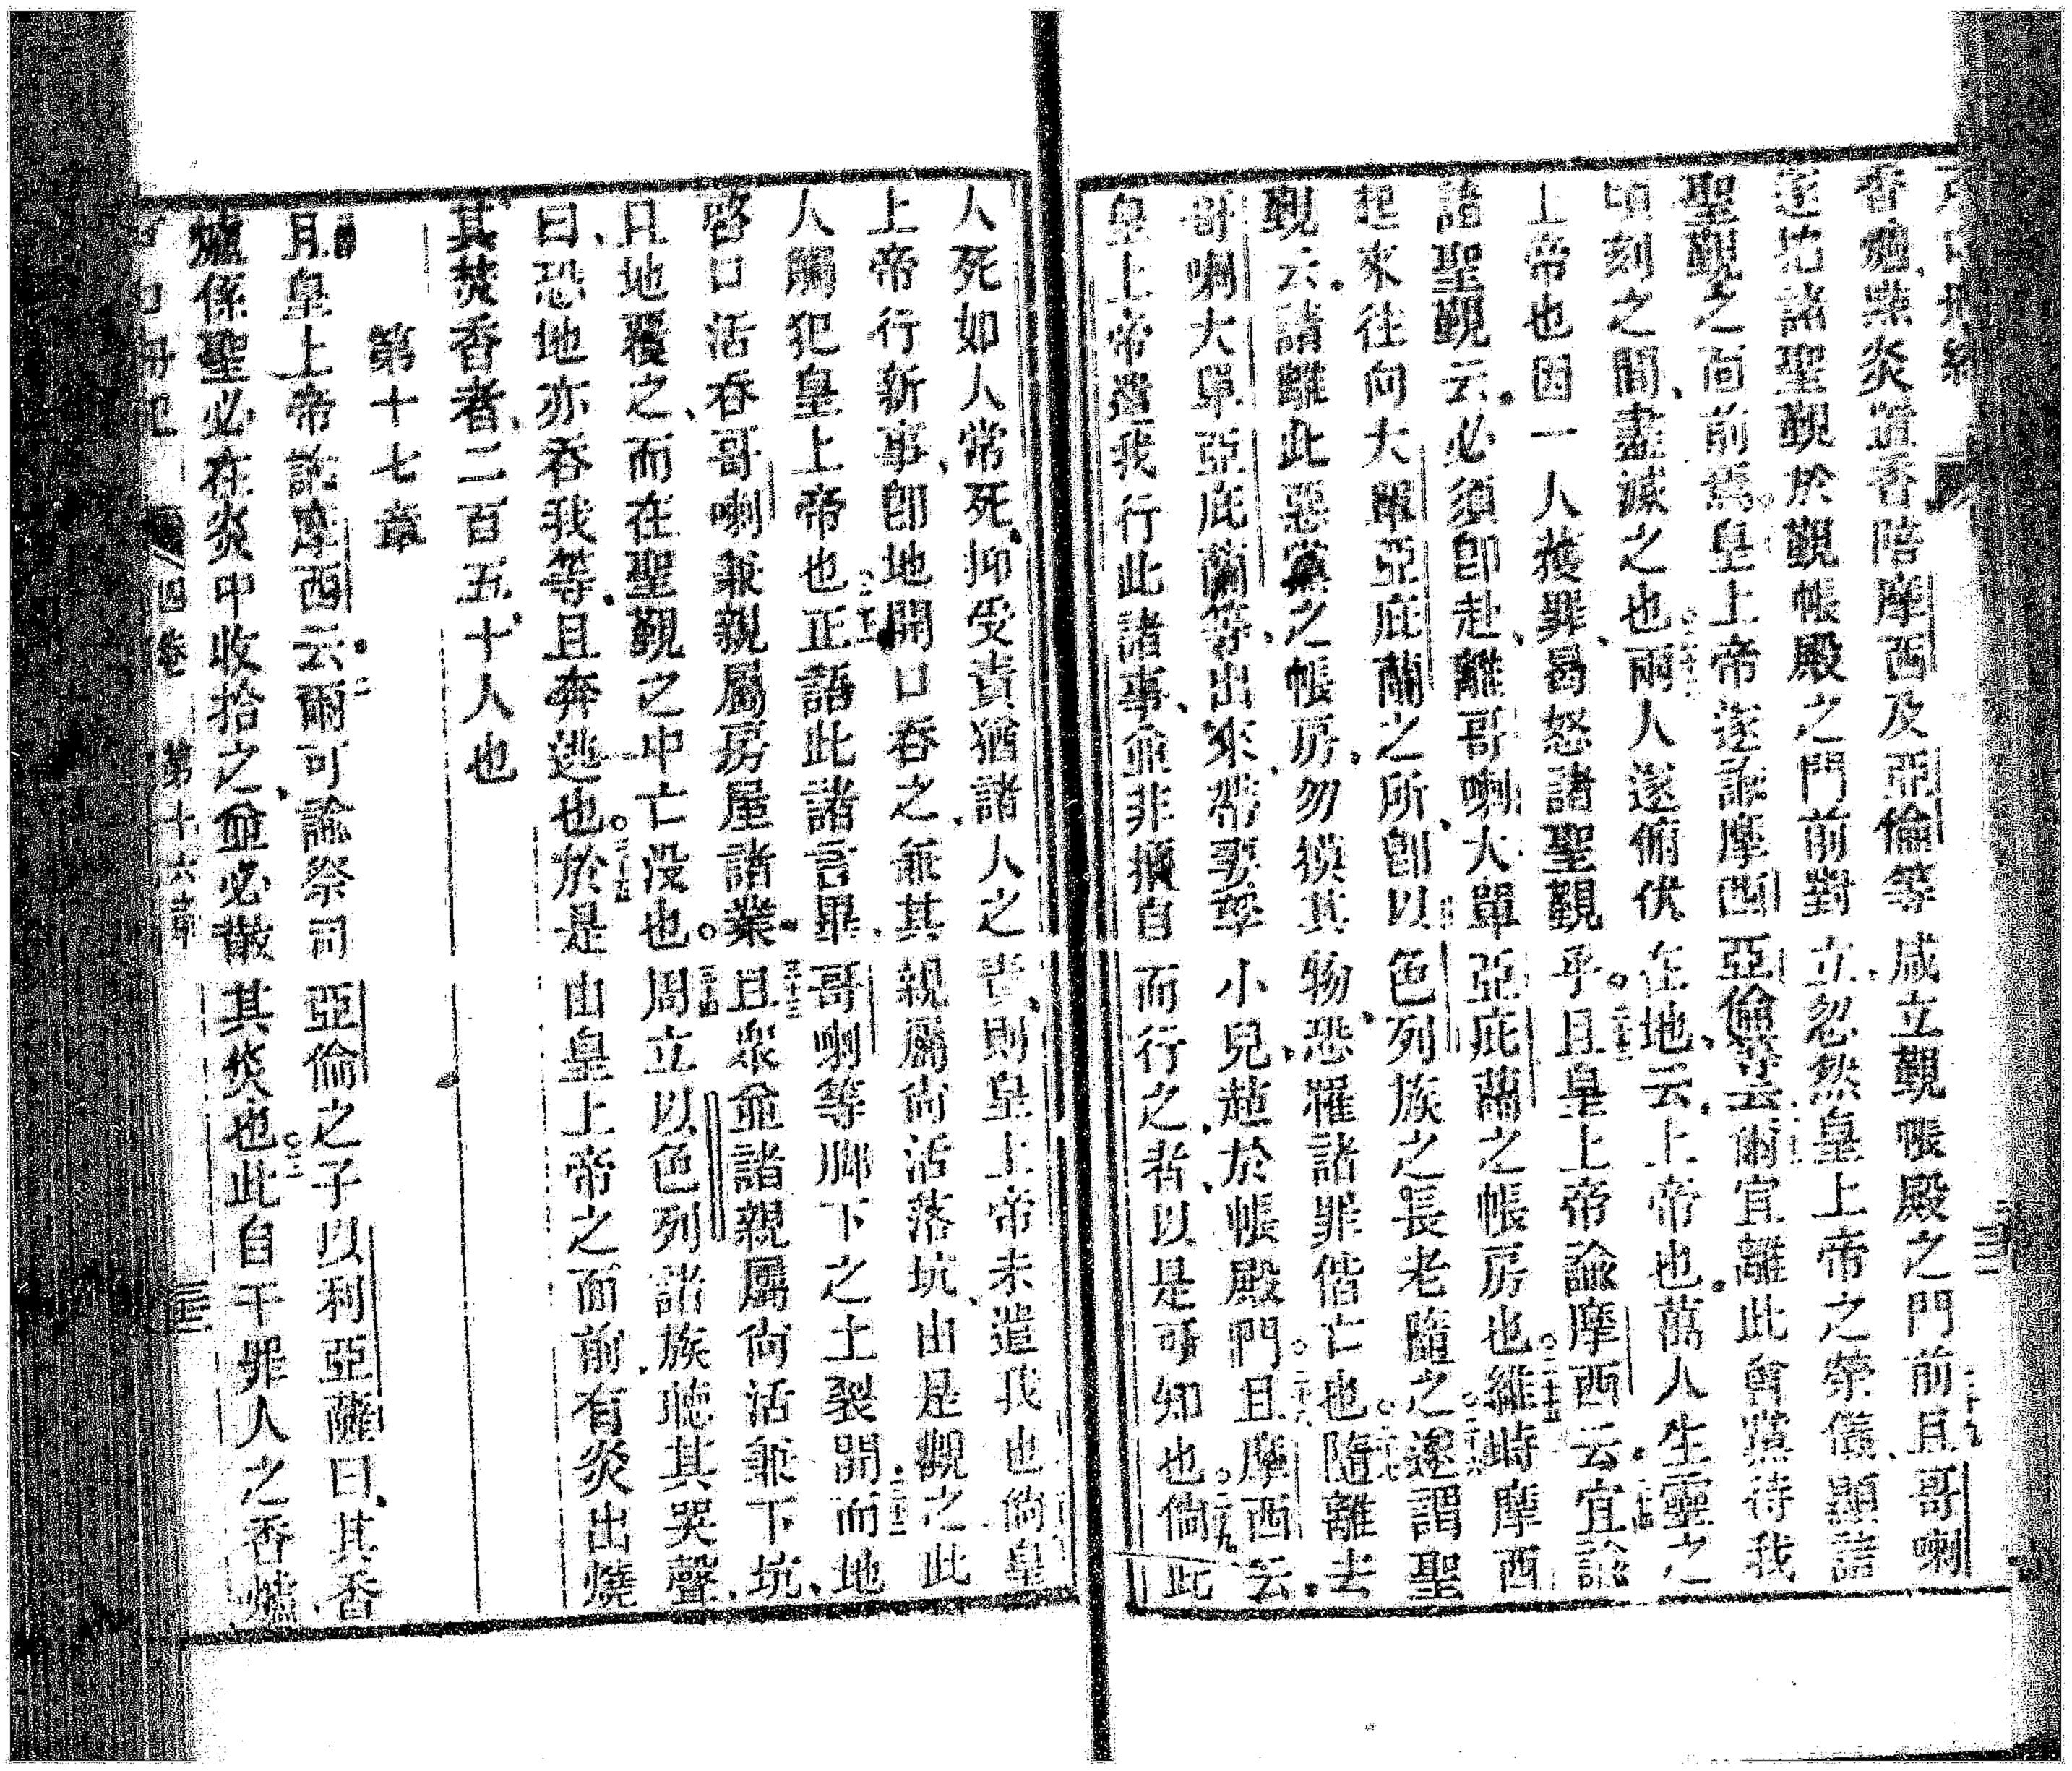 香爐㸃炎置香陪摩西及亞倫等咸立覲帳殿之門前且哥喇
遂招諸聖覲於覲帳殿之門前對立忽然皇上帝之榮儀顯諸
聖覲之面前焉皇上帝遂諭摩西亞倫等云爾宜離此會黨待我
頃刻之間盡滅之也兩人遂俯伏在地云上帝也萬人生靈之
上帝也因一人獲罪曷怒諸聖覲乎且皇上帝諭摩西云宜諭
諸聖覲云必須即赴離哥喇大單亞庇蘭之帳房也維時摩西
起來往向大單亞庇蘭之所即以色列族之長老隨之遂謂聖
覲云請離此惡黨之帳房勿摸其物恐罹諸罪偕亡也隨離去
哥喇大單亞庇蘭等出來帶妻孥小兒趨於帳殿門且摩西云
皇上帝遣我行此諸事並非擅自而行之者以是可知也倘此
人死如人常死抑受責猶諸人之責則皇上帝未遣我也倘皇
上帝行新事即地開口吞之兼其親屬尚活落坑由是觀之此
人觸犯皇上帝也正語此諸言畢哥喇等脚下之土裂開而地
啓口活吞哥喇兼親屬房屋諸業且眾並諸親屬尚活兼下坑
且地覆之而在聖覲之中亡没也周立以色列諸族聽其哭聲
曰恐地亦吞我等且奔逃也於是由皇上帝之面前有炎出燒
其焚香者二百五十人也
第十七章
且皇上帝諭摩西云爾可諭祭司亞倫之子以利亞薩曰其香
爐係聖必在炎中收拾之並必散其炎也此自干罪人之香爐
四卷 第十六章